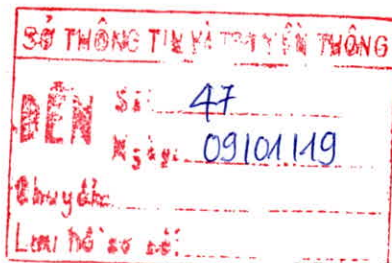 SỞ THÔNG TIN VÀ TRUYỀN THÔNG
ĐẾN
Số: 47
Ngày: 09/01/19
Chuyển:
Lưu hồ sơ số: